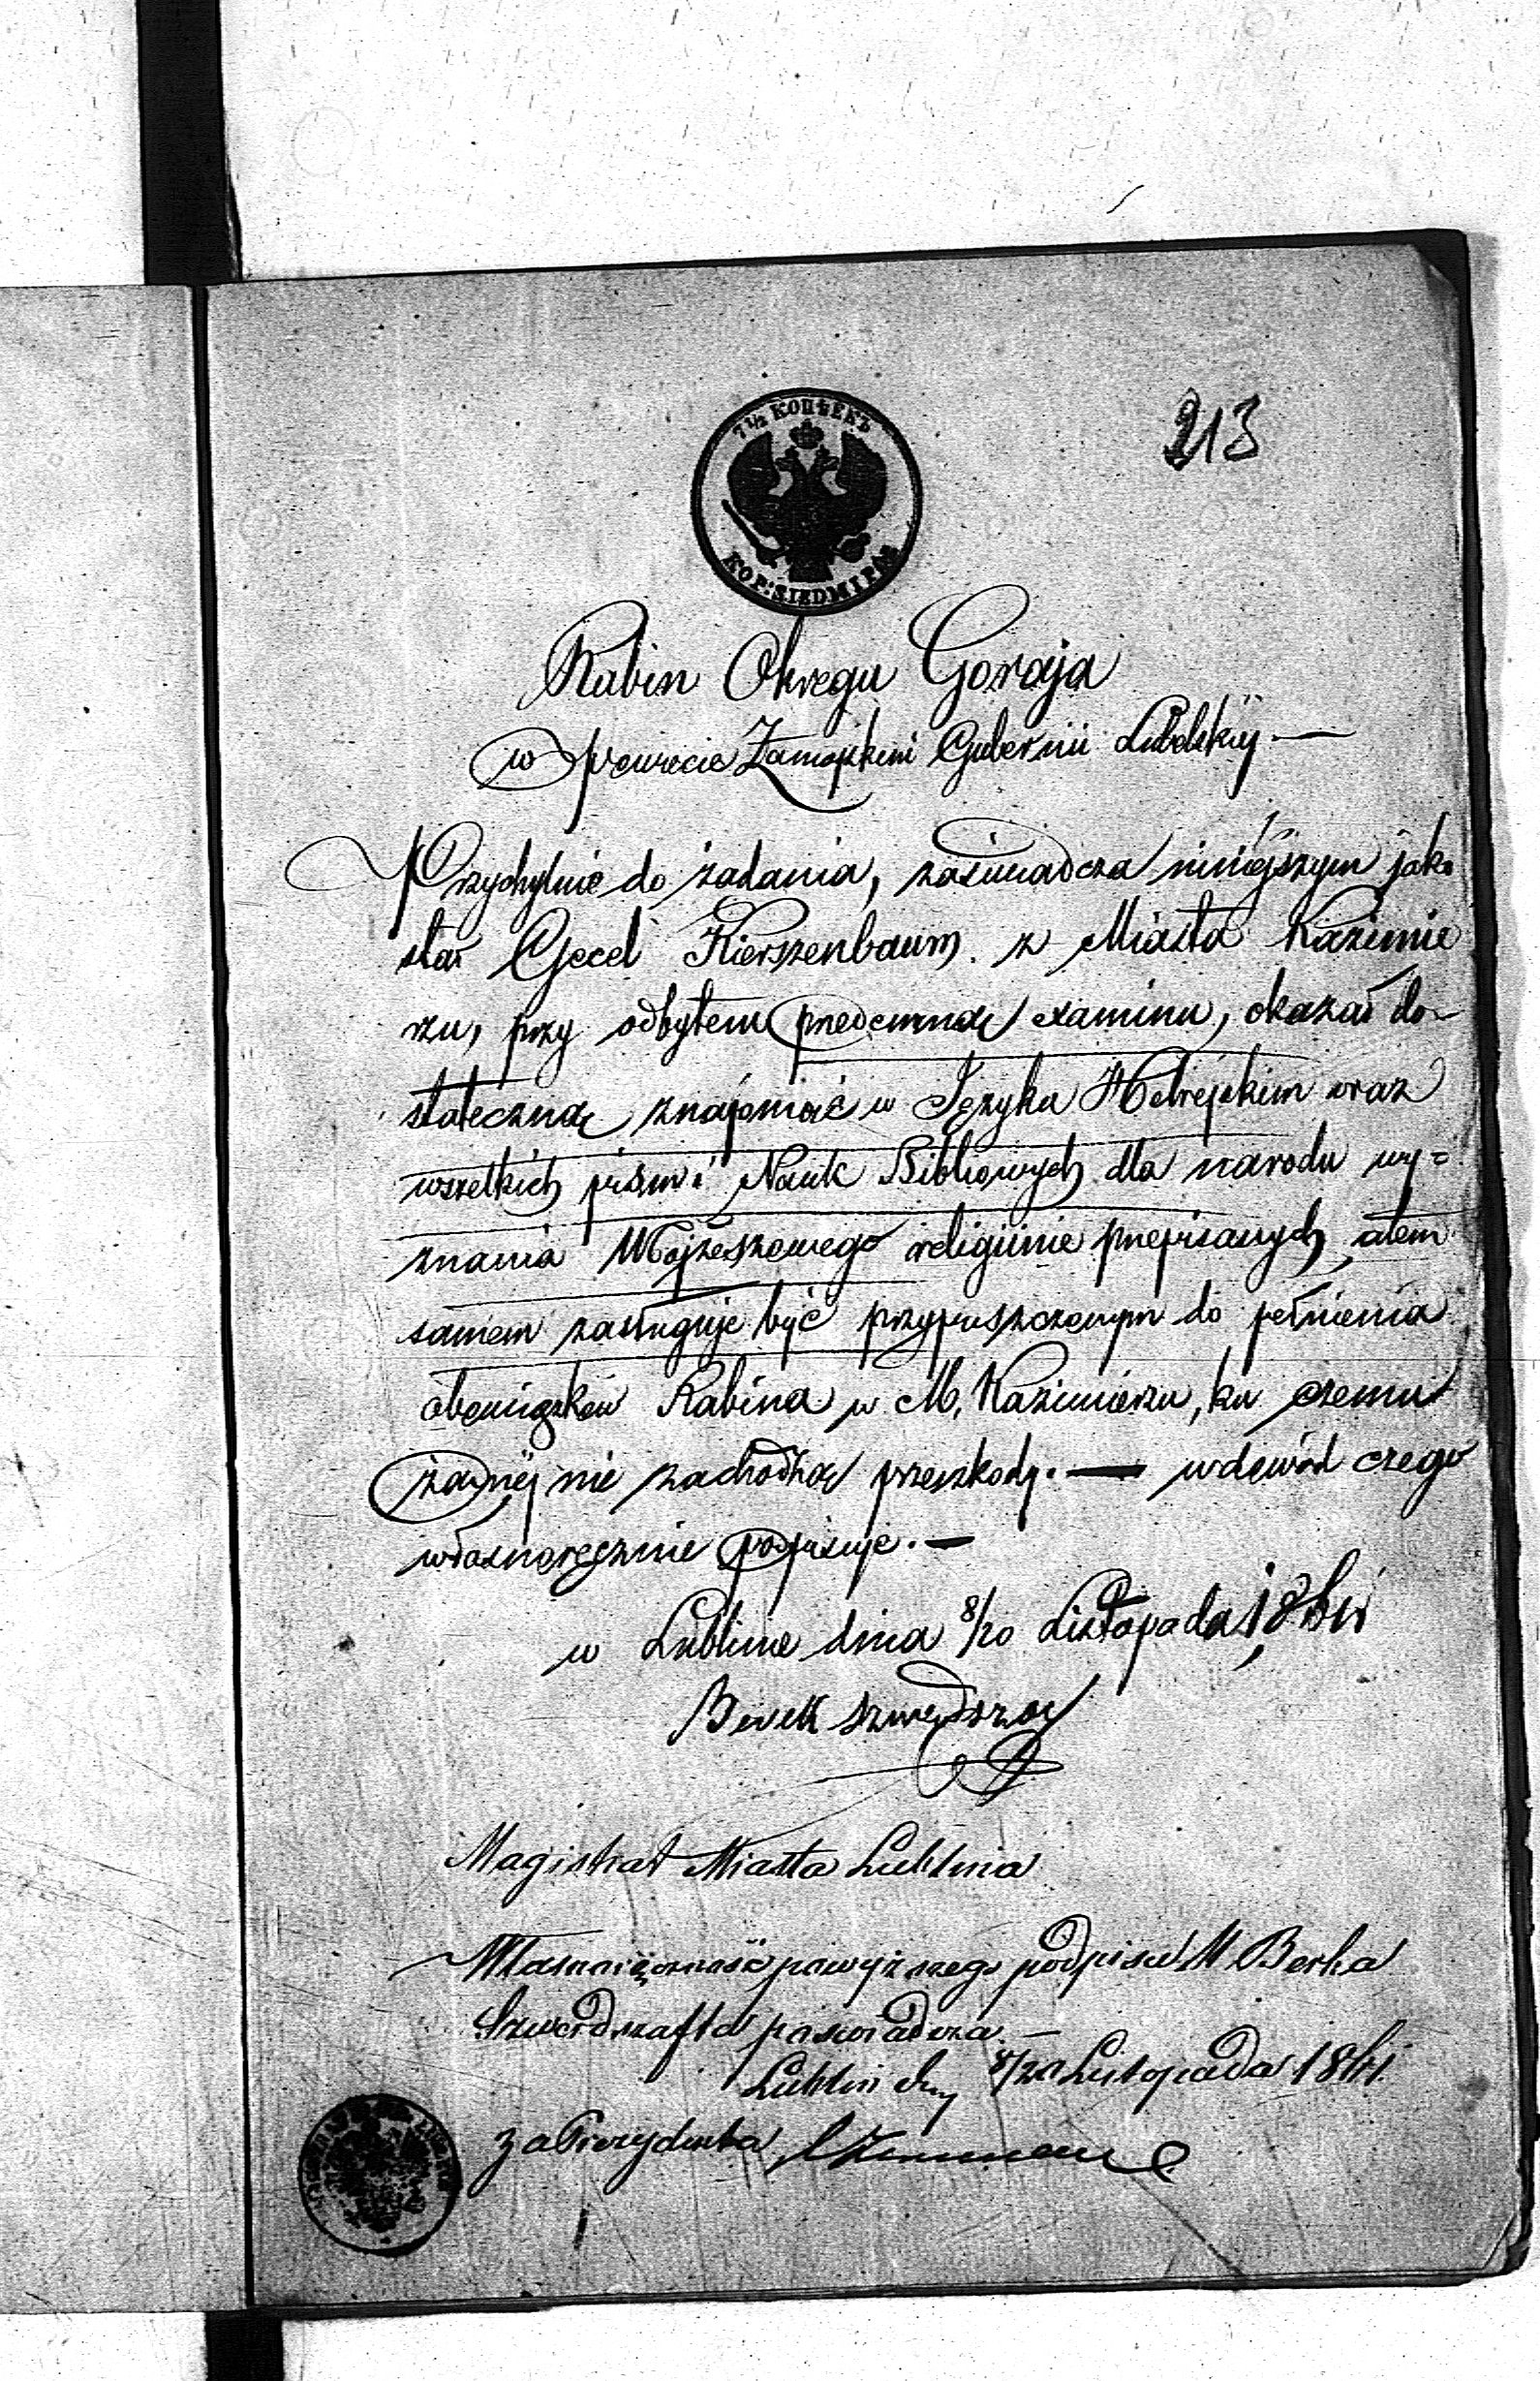 213
7½ КОПѢЕКЪ
KOP: SIEDM I PÓŁ
Rabin Okregu Goraja
w Powiecie Zamojskim Gubernii Lubelskiej —
Przychylnie do żadania, zaświadcza niniejszym jako
star Gecel Kierszenbaum z Miasta Kazimie
rzu, przy odbytem przedemną examinu, okazał do-
stateczną znajomość w Języku Hebrejskim oraz
wszelkich pism i Nauk Bibliowych dla narodu wy=
znania Mojżeszowego religijnie przepisanych, atem
samem zasługuje być przypuszczonym do pełnienia
obowiązków Rabina w M. Kazimierzu, ku czemu
żadnéj nie zachodzą przeszkody. — wdowód czego
własnoręcznie podpisuje. —
w Lublinie dnia 8/20 Listopada
Berek
Magistrat Miasta Lublina
Własnoręczność powyższego podpisu Berka
Szwerdszafta poswiadcza. —
Lublin dn 8/20 Listopada
za Prezydenta